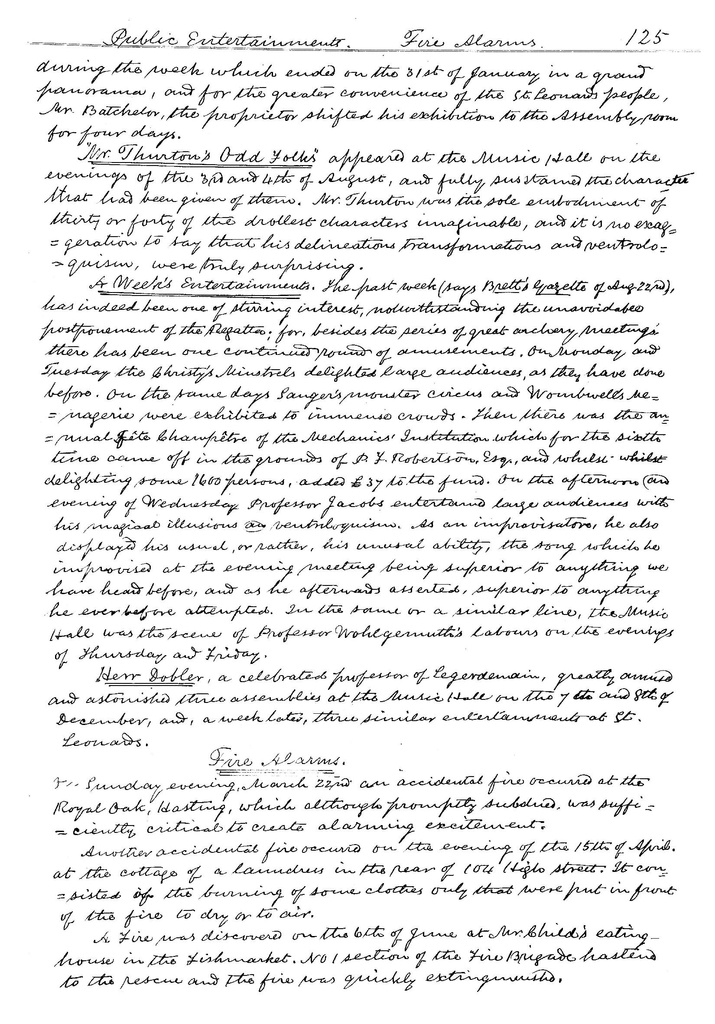 Public Entertainments. Fire Alarms. 125
during the week which ended on the 31st of January in a grand
panorama, and for the greater convenience of the St. Leonards people,
Mr. Batchelor, the proprietor shifted his exhibition to the Assembly room
for four days.
"Mr. Thurton's Odd Folks" appeared at the Music Hall on the
evenings of the 3rd and 4th of August, and fully sustained the character
that had been given of them. Mr. Thurton was the sole embodment of
thirty or forty of the drollest characters imaginable, and it is no exag=
=geration to say that his delineations transformations and ventrolo=
=quism, were truly surprising.
A Week's Entertainments. The past week (says Brett's Gazette of Aug. 22nd),
has indeed been one of stirring interest, notwithstanding the unavoidable
postponement of the Regatta. for, besides the series of great archery meetings
there has been one continued round of amusements. On Monday and
Tuesday the Christy's Minstrels delighted large audiences, as they have done
before. On the same days Sanger's monster circus and Wombwell's Me=
=nagerie were exhibited to immense crowds. Then there was the an=
=nual Fête Champêtre of the Mechanics' Institution which for the sixth
time came off in the grounds of P. F. Robertson, Esq., and whilst whilst
delighting some 1600 persons, added £37 to the fund. On the afternoon and
evening of Wednesday Professor Jacobs entertaind large audiences with
his magical illusions and ventriloquism. As an improvisatore, he also
displayed his usual, or rather, his unusual ability, the song which he
improvised at the evening meeting being superior to anything we
have heard before, and as he afterwards asserted, superior to anything
he ever before attempted. In the same or a similar line, the Music
Hall was the scene of Professor Wohlgemuth's labours on the evenings
of Thursday and Friday.
Herr Dobler, a celebrated professor of Legerdemain, greatly amused
and astonished three assemblies at the Music Hall on the 7th and 8th of
December, and, a week later, three similar entertainments at St.
Leonards.
Fire Alarms.
Sunday evening, March 22nd an accidental fire occured at the
Royal Oak, Hasting, which although promptly subdued, was suffi=
=ciently critical to create alarming excitement.
Another accidental fire occured on the evening of the 15th of April.
at the cottage of a laundress in the rear of 104 High street. It con=
=sisted of the burning of some clothes only that were put in front
of the fire to dry or to air.
A Fire was discovered on the 6th of June at Mr. Child's eating-
house in the Fishmarket. No 1 section of the Fire Brigade hastend
to the rescue and the fire was quickly extinguished.